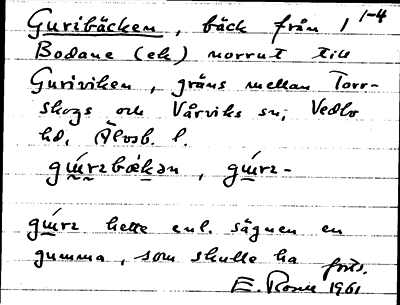 1-4
Guribäcken, bäck från
Bodane (ek) norrut till
Guriviken, gräns mellan Torr-
skogs och Vårviks sn; Vedbo
hd, Älvsb. l.
hette enl. sägnen en
gumma, som skulle ha
forts.
E. 1961